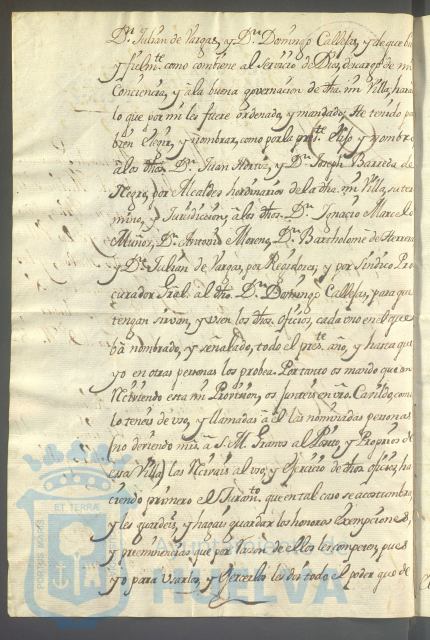 Dn. Julián de Vargas, y Dn. Domingo Callejas, y de que bien
y fielmte. como contiene al servicio de Dios, descargo de mi
Conciencia, y à la buena governacion de dha. mi Villa, haran
lo que por mi les fuere ordenado, y mandado, He tenido por
bien elegir, y nombrar, como por la preste. elijo, y nombro
à los dhos. Dn. Juan Hortiz, y Dn. Joseph Barreda de
Negro, por Alcaldes hordinarios de la dha. mi Villa, su ter
mino, y Jurisdicion, à los dhos. Dn. Ignacio Marcelo
Muñoz, Dn. Antonio Moreno, Dn. Bartholome de Herrera
y Dn. Julián de Vargas, por Regidores, y por Sindico Pro
curador Gral. al dho. Dn. Domingo Callejas, para que
tengan sirvan, y usen los dhos. oficios, cada uno en el que
bà nombrado, y señalado, todo el preste. año, y hasta que
yo en otras personas los probea. Por tanto os mando que en
Reciviendo esta mi Provision, os junteis en vro. Cavildo como
lo teneis de uso, y llamadas à èl las nominadas personas
(no deviendo mrs. à S. M. Granos al Posito, y Propios de
esa Villa) los Recivais al uso, y Exercicio de dhos. oficios, ha
ciendo primero el Juramto. que en tal caso se acostumbra
y les guardeis, y hagais guardar los honores Exempciones,
y preeminencias que por razon de ellos les competen, pues
yo para usarlos, y Exercerlos les doi todo el poder que de
ET TERRÆ
PORTUS MARIS
Ayuntamiento de
HUELVA